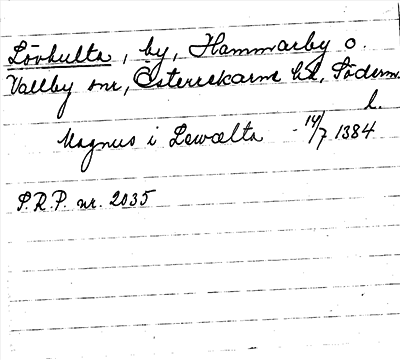 Lövhulta, by, Hammarby o.
Vallby snr, Österrekarne hd, Söderm.
l.
Magnus i Lewælta - 14/7 1384
S.R.P. nr. 2035